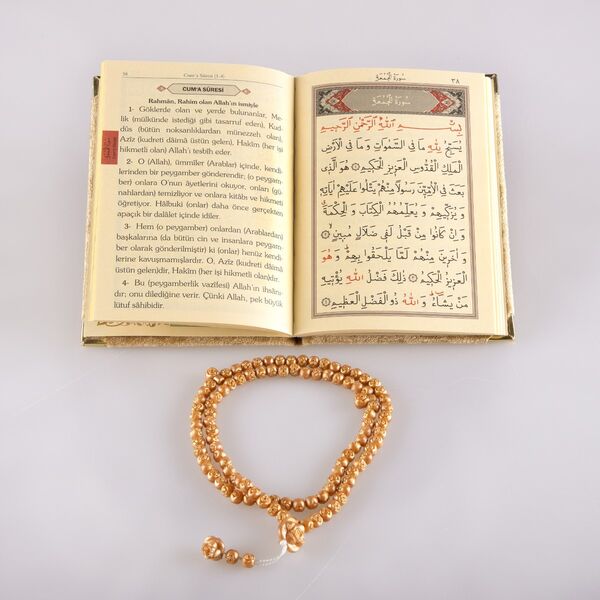 38
Cum'a Sûresi (1-4)
CUM'A SÛRESİ
Rahmân, Rahîm olan Allah'ın ismiyle
1- Göklerde olan ve yerde bulunanlar, Me-
lik (mülkünde istediği gibi tasarruf eden), Kud-
dûs (bütün noksanlıklardan münezzeh olan),
Azîz (kudreti dâimâ üstün gelen), Hakîm (her işi
hikmetli olan) Allah'ı tesbîh eder.
2- O (Allah), ümmîler (Arablar) içinde, kendi-
lerinden bir peygamber gönderendir; (o peygam-
ber) onlara O'nun âyetlerini okuyor, onları (gü-
nahlardan) temizliyor ve onlara kitâbı ve hikmeti
öğretiyor. Hâlbuki (onlar) daha önce gerçekten
apaçık bir dalâlet içinde idiler.
3- Hem (o peygamber) onlardan (Arablardan)
başkalarına (da bütün cin ve insanlara peygam-
ber olarak gönderilmiştir) ki (onlar) henüz kendi-
lerine kavuşmamışlardır. O, Azîz (kudreti dâimâ
üstün gelen)dir, Hakîm (her işi hikmetli olan)dır.
4- Bu (peygamberlik vazîfesi) Allah'ın ihsânı-
dır; onu dilediğine verir. Çünki Allah, pek büyük
lütuf sâhibidir.
سُورَةُ الْجُمُعَةِ
٣٨
سُورَةُ الْجُمُعَةِ
بِسْمِ اللّٰهِ الرَّحْمٰنِ الرَّحِيمِ
يُسَبِّحُ لِلّٰهِ مَا فِي السَّمٰوَاتِ وَ مَا فِي الْاَرْضِ
الْمَلِكِ الْقُدُّوسِ الْعَزِيزِ الْحَكِيمِ ۝١ هُوَ الَّذِي
بَعَثَ فِي الْاُمِّيِّنَ رَسُولًا مِنْهُمْ يَتْلُوا عَلَيْهِمْ اٰيَاتِهِ
وَ يُزَكِّيهِمْ وَ يُعَلِّمُهُمُ الْكِتَابَ وَ الْحِكْمَةَ
وَ اِنْ كَانُوا مِنْ قَبْلُ لَفِي ضَلَالٍ مُبِينٍ ۝٢
وَ اٰخَرِينَ مِنْهُمْ لَمَّا يَلْحَقُوا بِهِمْ وَ هُوَ
الْعَزِيزُ الْحَكِيمُ ۝٣ ذٰلِكَ فَضْلُ اللّٰهِ يُؤْتِيهِ
مَنْ يَشَاءُ وَ اللّٰهُ ذُو الْفَضْلِ الْعَظِيمِ ۝٤